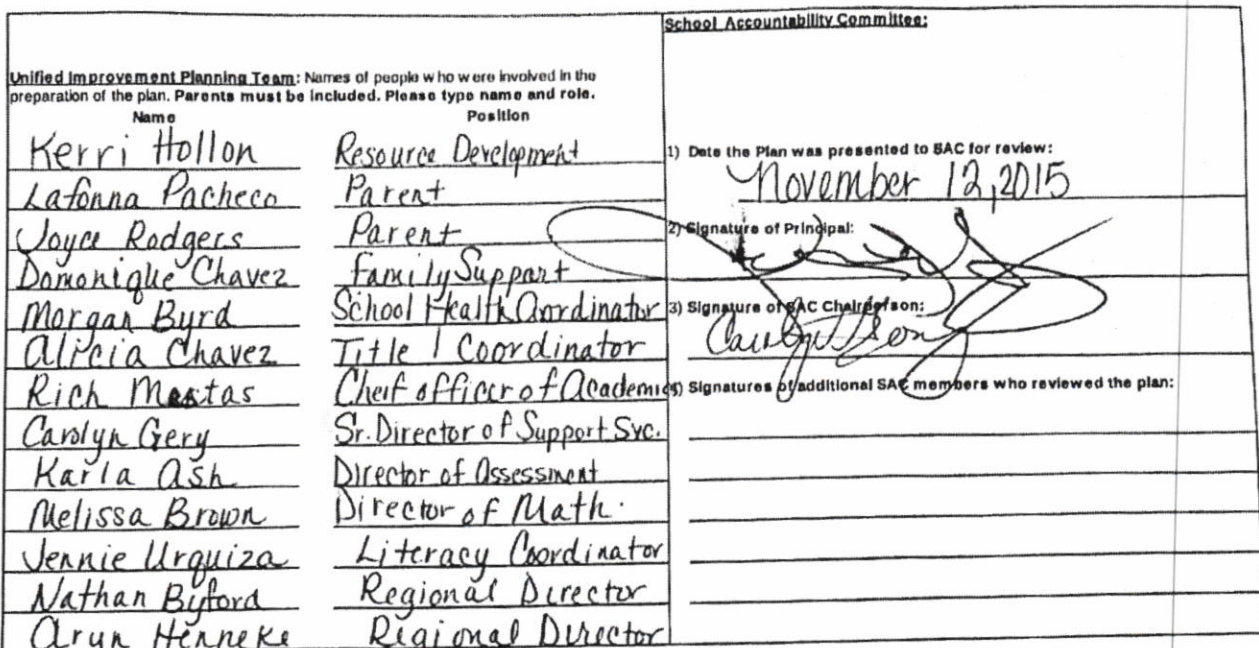 School Accountability Committee:
Unified Improvement Planning Team: Names of people who were involved in the
preparation of the plan. Parents must be included. Please type name and role.
Name Position
Kerri Hollon Resource Development
Lafonna Pacheco Parent
Joyce Rodgers Parent
Domonique Chavez Family Support
Morgan Byrd School Health Coordinator
Alicia Chavez Title 1 Coordinator
Rich Mestas Cheif officer of Academics
Carolyn Gery Sr. Director of Support Svc.
Karla Ash Director of Assessment
Melissa Brown Director of Math.
Jennie Urquiza Literacy Coordinator
Nathan Byford Regional Director
Arun Henneke Regional Director
1) Date the Plan was presented to SAC for review:
November 12, 2015
2) Signature of Principal:
3) Signature of SAC Chairperson:
Signatures of additional SAC members who reviewed the plan: